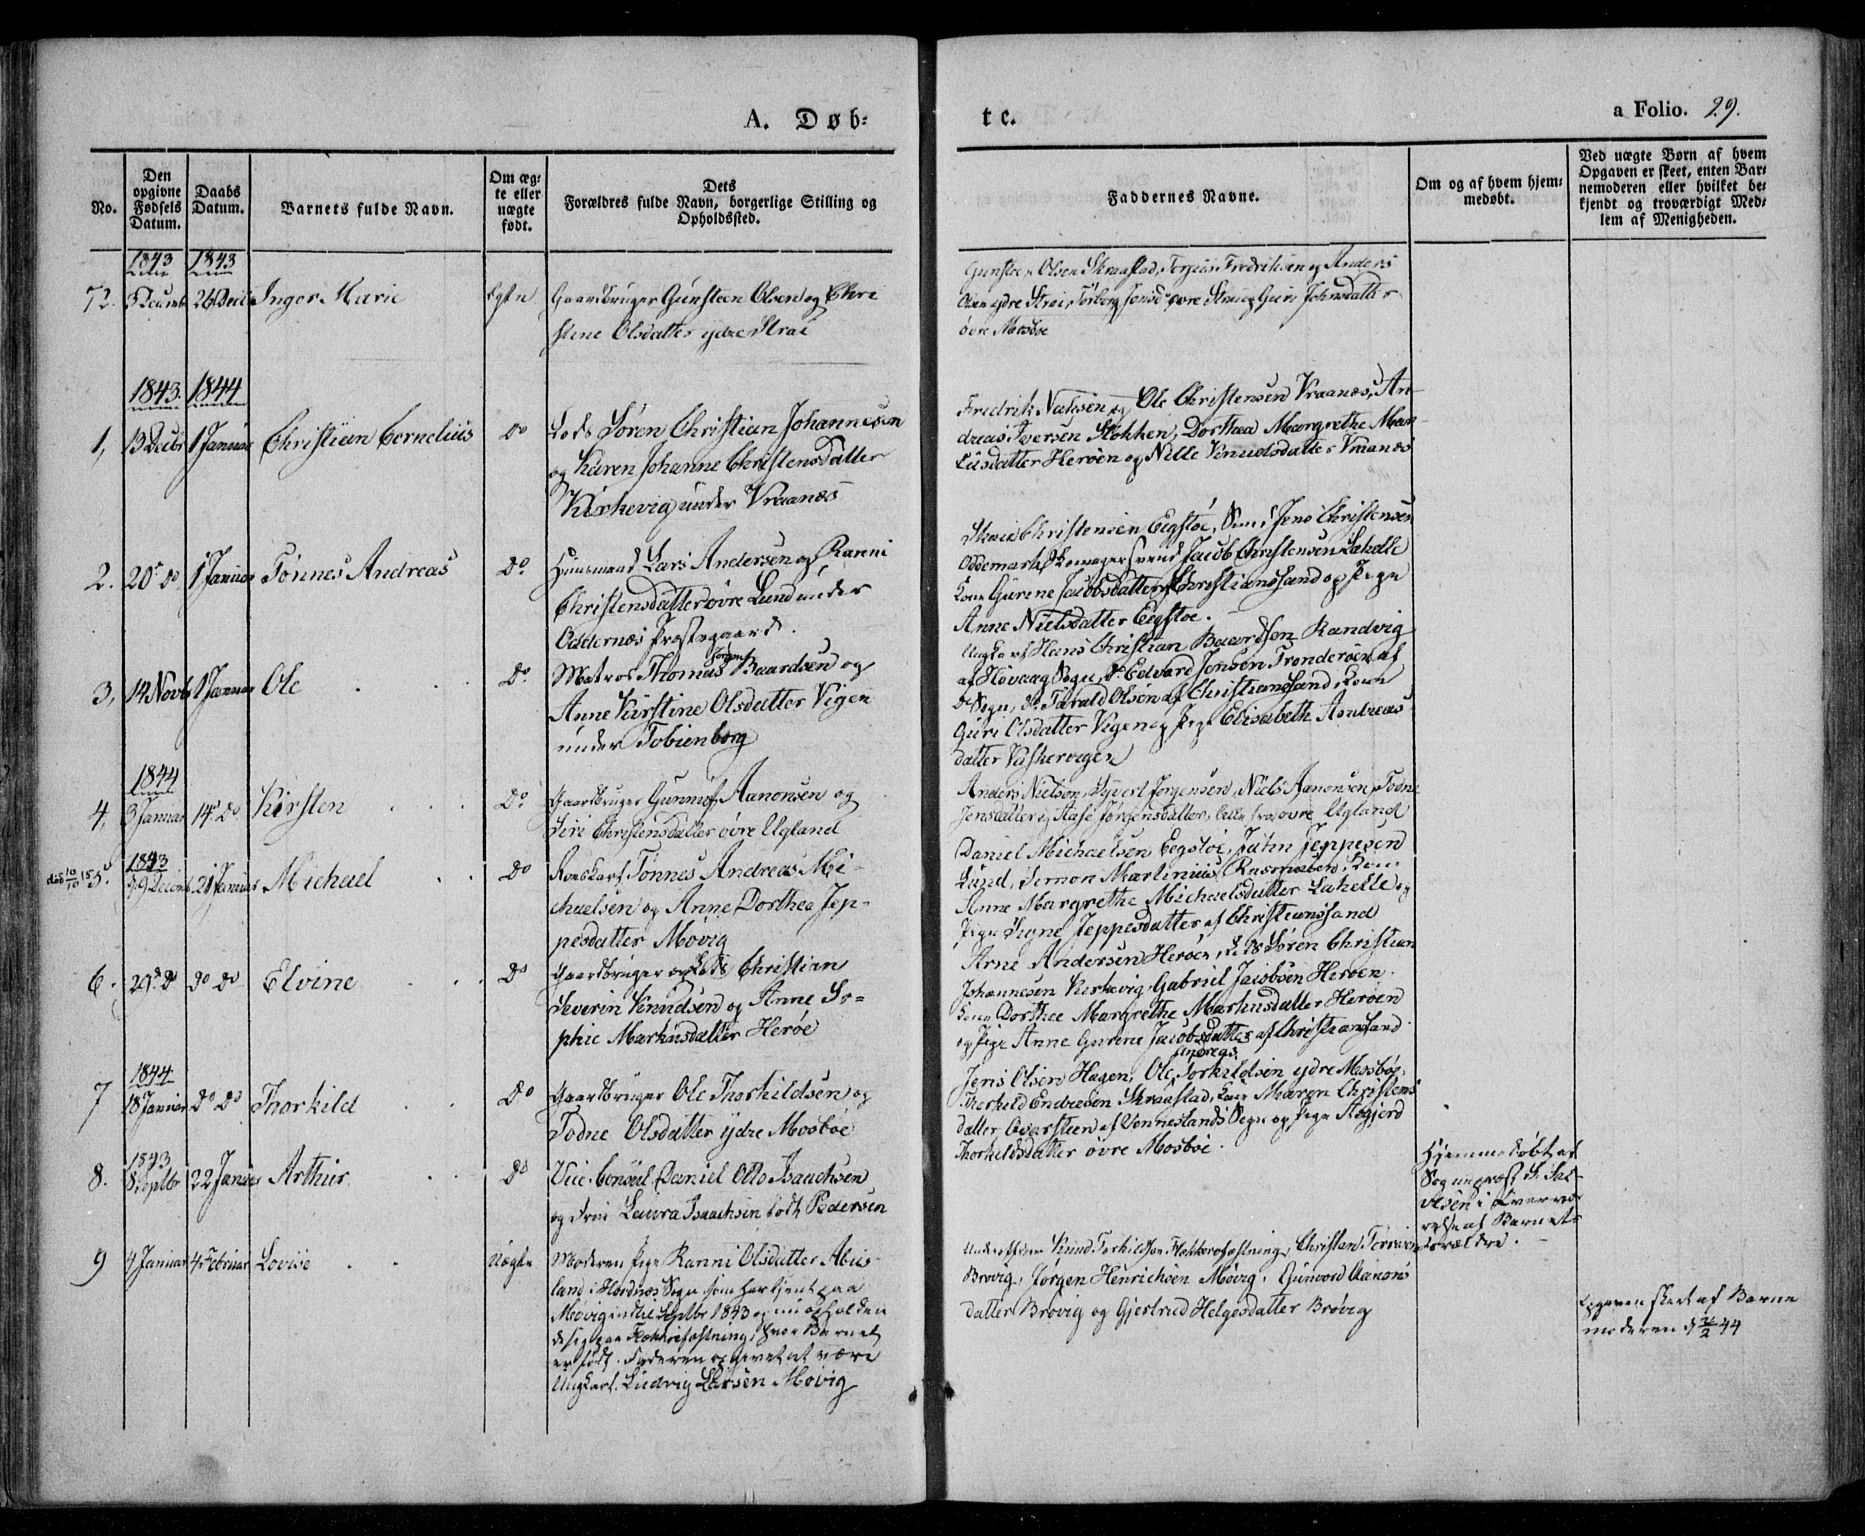 A. Døb-
te.
a Folio. 29.
No.
Den opgivne Fødsels Datum.
Daabs Datum.
Barnets fulde Navn.
Om ægte eller uægte født.
Dets
Forældres fulde Navn, borgerlige Stilling og
Opholdssted.
Faddernes Navne.
Om og af hvem hjem-
medøbt.
Ved uægte Børn af hvem
Opgaven er skeet, enten Bar-
nemoderen eller hvilket be-
kjendt og troværdigt Med-
lem af Menigheden.
1843 1843
72. Inger Marie Egte Gaardbruger Gunsteen Olsen og Chri
stine Olsdatter ydre Strai
Gunsteen Olsen Skraastad, Fredriksen og Anders
Olsen ydre Strai, øvre Strai og Guri Johnsdatter
øvre Mosbøe
1843. 1844
1, 13 Decbr 1 Januar Christian Cornelius Do Lods Søren Christian Johannesen
og Karen Johanne Christensdatter
Kirkevig under Vraanæs
Fredrik og Ole Christensen Vraanæs, An-
dreas Iversen Stokken, Dorthea Margrethe Mar-
kusdatter Herøen og Nille Knudsdatter Vraanæs
2. 20de Do 1 Januar Tønnes Andreas Do. Huusmand Lars Andersen og Ranni
Christensdatter øvre Lund under
Oddernæs Præstegaard.
Christensen Eegstøe, Jens Christensen
Oddemark, Jacob Christensen Lahelle
Kone Gurine Jacobsdatter Christianssand og Pige
Anne Nielsdatter Eegstøe.
3, 14 Novb 1 Januar Ole Do. Matros Thomas Baardsen og
Jørgen
Anne Kirstine Olsdatter Vigen
under Tobienborg
Ungkarl Hans Christian Baardsen Randvig
af Høvaag Sogn, Do Edvard Jensen Trønderøen af
Do Sogn, Do Tarald Olsen af Christianssand, Kone
Guri Olsdatter Vigen og Pige Elisabeth Andreas
datter Vaskervigen
1844
4, 3 Januar 14de Do Kirsten Do Gaardbruger Gunnuf Aanonsen og
Siri Christensdatter øvre Ugland
Anders Nielsen, Syvert Jørgensen, Niels Aanonsen, Todne
Jensdatter og Aase Jørgensdatter, alle fra øvre Ugland
1843
5. 21 Januar Michael Do Tønnes Andreas Mi-
chaelsen og Anne Dorthea Jep-
pesdatter Møvig
Daniel Michaelsen Eegstøe, Jahn Jeppesen
Lund, Simon Martinius Rasmussen, Kone
Anne Margrethe Michaelsdatter Lahelle og
Pige Signe Jeppesdatter af Christianssand
6. 29de Do Do Do Elvine Do Gaardbruger og Lods Christian
Severin Knudsen og Anne So-
phie Markusdatter Herøe
Arne Andersen Herøen, Lods Søren Christian
Johannesen Kirkevig, Gabriel Jacobsen Herøen.
Kone Dorthea Margrethe Markusdatter Herøen
og Pige Anne Gurine Jacobsdatter af Christianssand.
1844
7 18 Januar Do Do Thorkild Do Gaardbruger Ole Thorkildsen og
Todne Olsdatter ydre Mosbøe
Andreas
Jens Olsen Hagen, Ole Torkildsen ydre Mosbøe,
Thorkild Endresen Skraastad, Kone Maren Christens
datter af Venneslands Sogn og Pige Asgjerd
Thorkildsdatter øvre Mosbøe.
1843
8. 8 Septbr 22 Januar Arthur Do Vice Consul Daniel Otto Isaachsen
og Frue Laura Isaachsen født Pedersen
Hjemmedøbt af
Sogneprest
i Overvæ-
relse af Barnets
Forældre.
9 4 Januar 4 Februar Lovise Uægte Moderen Pige Ranni Olsdatter
land i Sogn som har tjent paa
Møvig indtil Septbr 1843 og nu opholder
sig paa Flekkerøfæstning, hvor Barnet
er født. Faderen opgivet at være
Ungkarl Ludvig Larsen Møvig
Knud Torkildsen Flekkerøfæstning, Christen
Brøvig, Jørgen Henrichsen Møvig, Gunvord Aanons
datter Brøvig og Gjertrud Helgesdatter Brøvig
Opgaven skeet af Barne
moderen